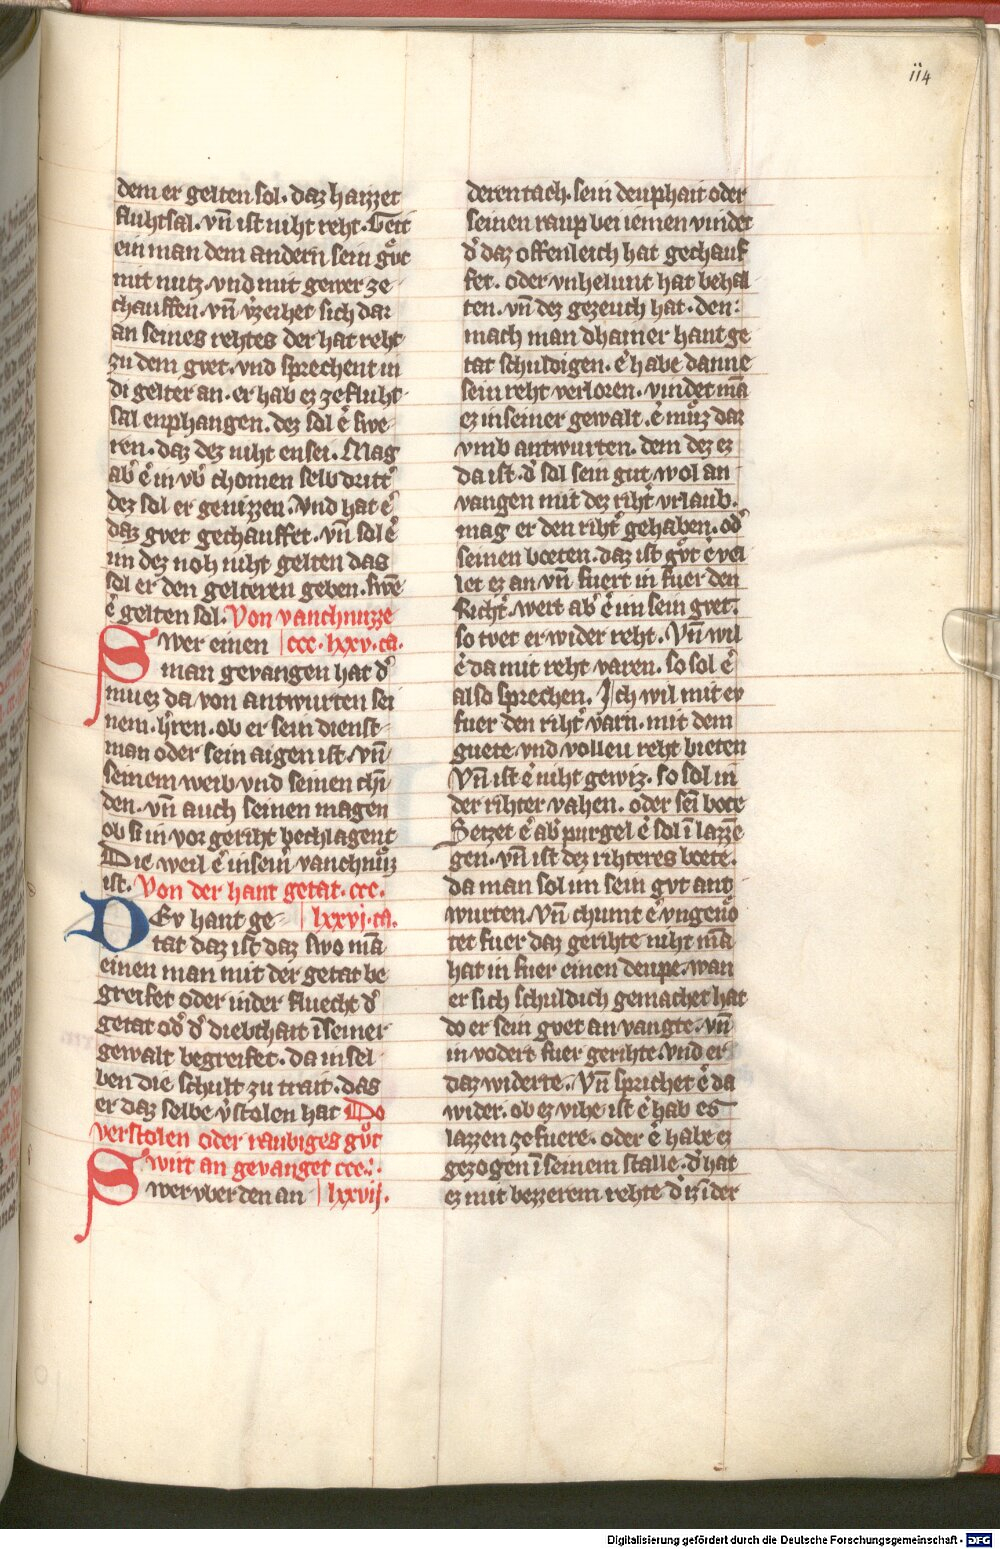 114
dem er gelten sol. daz haizzet
fluhtsal. vn̄ ist niht reht. Geit
ein man dem andern sein gůt
mit nutz. vnd mit gewer ze
chauffen. vn̄ v̾zeihet sich dar
an seines rehtes der hat reht
zu dem gvet. vnd sprechent in
di gelter an. er hab ez ze fluht
sal enphangen. dez sol e᷑ swe
ren. daz dez niht ensei. Mag
ab᷑ e᷑ in vb᷑ chomen selb dritt᷑
dez sol er genizzen. Vnd hat e᷑
daz gvet gechauffet. vn̄ sol e᷑
im dez noh niht gelten das
sol er den gelteren geben. swē
e᷑ gelten sol. Von vanchnuzze
Swer einen ccc. lxxv. ca.
man gevangen hat d᷑
muez da von antwurten sei
nem. h᷑ren. ob er sein dienst
man oder sein aigen ist. vn̄
seinem weib vnd seinen chī
den. vn̄ auch seinen magen
ob si in vor geriht bechlagent
Die weil e᷑ in sein᷑ vanchnůz
ist. Von der hant getat. ccc.
DEv hant ge lxxvj. ca.
tat daz ist daz swo mā
einen man mit der getat be
greifet oder in der fluecht d᷑
getat od᷑ d᷑ diebhait ī seiner
gewalt begreifet. da in sel
ben die schult zu trait. das
er daz selbe v᷑stolen hat Do
verstolen oder raubiges gůt
wirt an gevanget ccc.
Swer vber den an lxxvij.
deren tach. sein deuphait oder
seinen raup bei iemen vindet
d᷑ daz offenleich hat gechauf
fet. oder vnhelunt hat behal
ten. vn̄ dez gezeuch hat. den
mach man dhainer hant ge
tat schuldigen. e᷑ habe danne
sein reht verloren. vindet mā
ez in seiner gewalt. e᷑ můz dar
vmb antwurten. dem dez ez
da ist. d᷑ sol sein gut wol an
vangen mit dez riht᷑ vrlaub.
mag er den riht᷑ gehaben. od᷑
seinen boeten. daz ist gůt e᷑ vel
let ez an vn̄ fuert in fuer den
Richt᷑. wert ab᷑ e᷑ im sein gvet.
so tvet er wider reht. Vn̄ wil
e᷑ da mit reht varen. so sol e᷑
also sprechen. Ich wil mit ev
fuer den riht᷑ varn. mit dem
guete. vnd volleu reht bieten
Vn̄ ist e᷑ niht gewiz. so sol in
der rihter vahen. oder sei bote
Setzet e᷑ ab᷑ purgel e᷑ sol ī lazzē
gen. vn̄ ist dez rihteres boete.
da man sol im sein gvt ant
wurten. Vn̄ chumt e᷑ vngenoͤ
tet fuer daz gerihte niht mā
hat in fuer einen deupe. wan
er sich schuldich gemachet hat
do er sein gvet an vangte. vn̄
in vodert fuer gerihte. vnd er
daz widerte. Vn̄ sprichet e᷑ da
wider. ob ez vihe ist e᷑ hab es
lazzen ze fuere. oder e᷑ habe ez
gezogen ī seinem stalle. d᷑ hat
ez mit bezzerem rehte d᷑ iz ī der
Digitalisierung gefördert durch die Deutsche Forschungsgemeinschaft - DFG